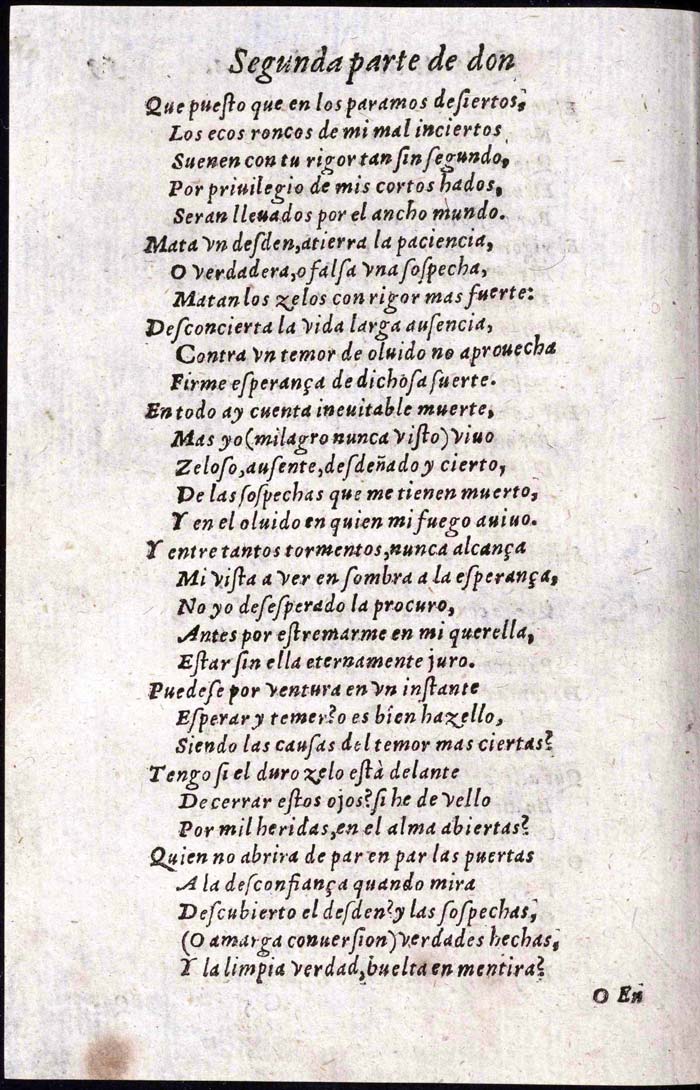 Segunda parte de don
Que pueſto que en los paramos deſiertos,
Los ecos roncos de mi mal inciertos
Suenen con tu rigor tan ſin ſegundo,
Por priuilegio de mis cortos hados,
Seran lleuados por el ancho mundo.
Mata vn desden, atierra la paciencia,
O verdadera, o falſa vna ſoſpecha,
Matan los zelos con rigor mas fuerte:
Deſconcierta la vida larga auſencia,
Contra vn temor de oluido no aprouecha
Firme eſperança de dichoſa ſuerte.
En todo ay cuenta ineuitable muerte,
Mas yo (milagro nunca viſto) viuo
Zeloſo, auſente, deſdeñado y cierto,
De las ſoſpechas que me tienen muerto,
Y en el oluido en quien mi fuego auiuo.
Y entre tantos tormentos, nunca alcança
Mi viſta a ver en ſombra a la eſperança,
No yo deſeſperado la procuro,
Antes por eſtremarme en mi querella,
Eſtar ſin ella eternamente juro.
Puedeſe por ventura en vn inſtante
Eſperar y temer? o es bien hazello,
Siendo las cauſas del temor mas ciertas?
Tengo ſi el duro zelo eſtà delante
De cerrar eſtos ojos? ſi he de vello
Por mil heridas, en el alma abiertas?
Quien no abrira de par en par las puertas
A la deſconfiança quando mira
Deſcubierto el deſden? y las ſoſpechas,
(O amarga conuerſion) verdades hechas,
Y la limpia verdad, buelta en mentira?
O En